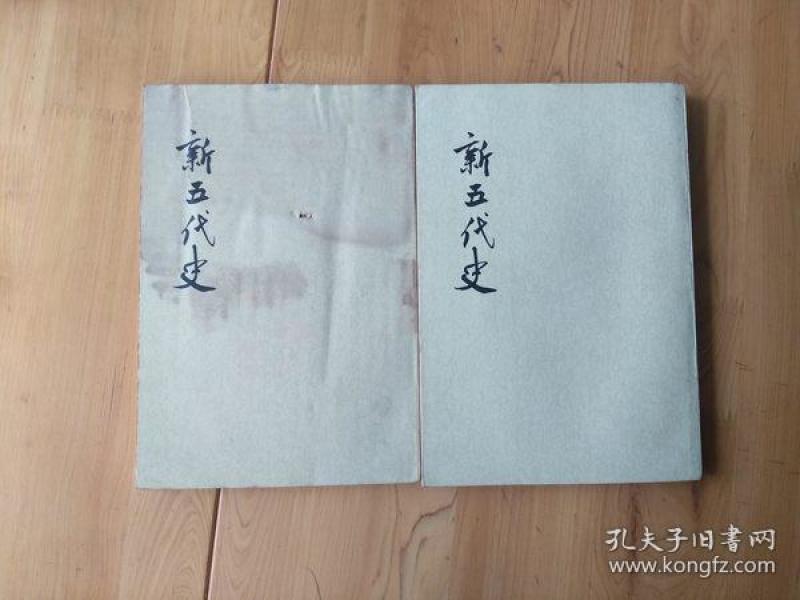 新五代史
新五代史
孔夫子旧書网
www.kongfz.com